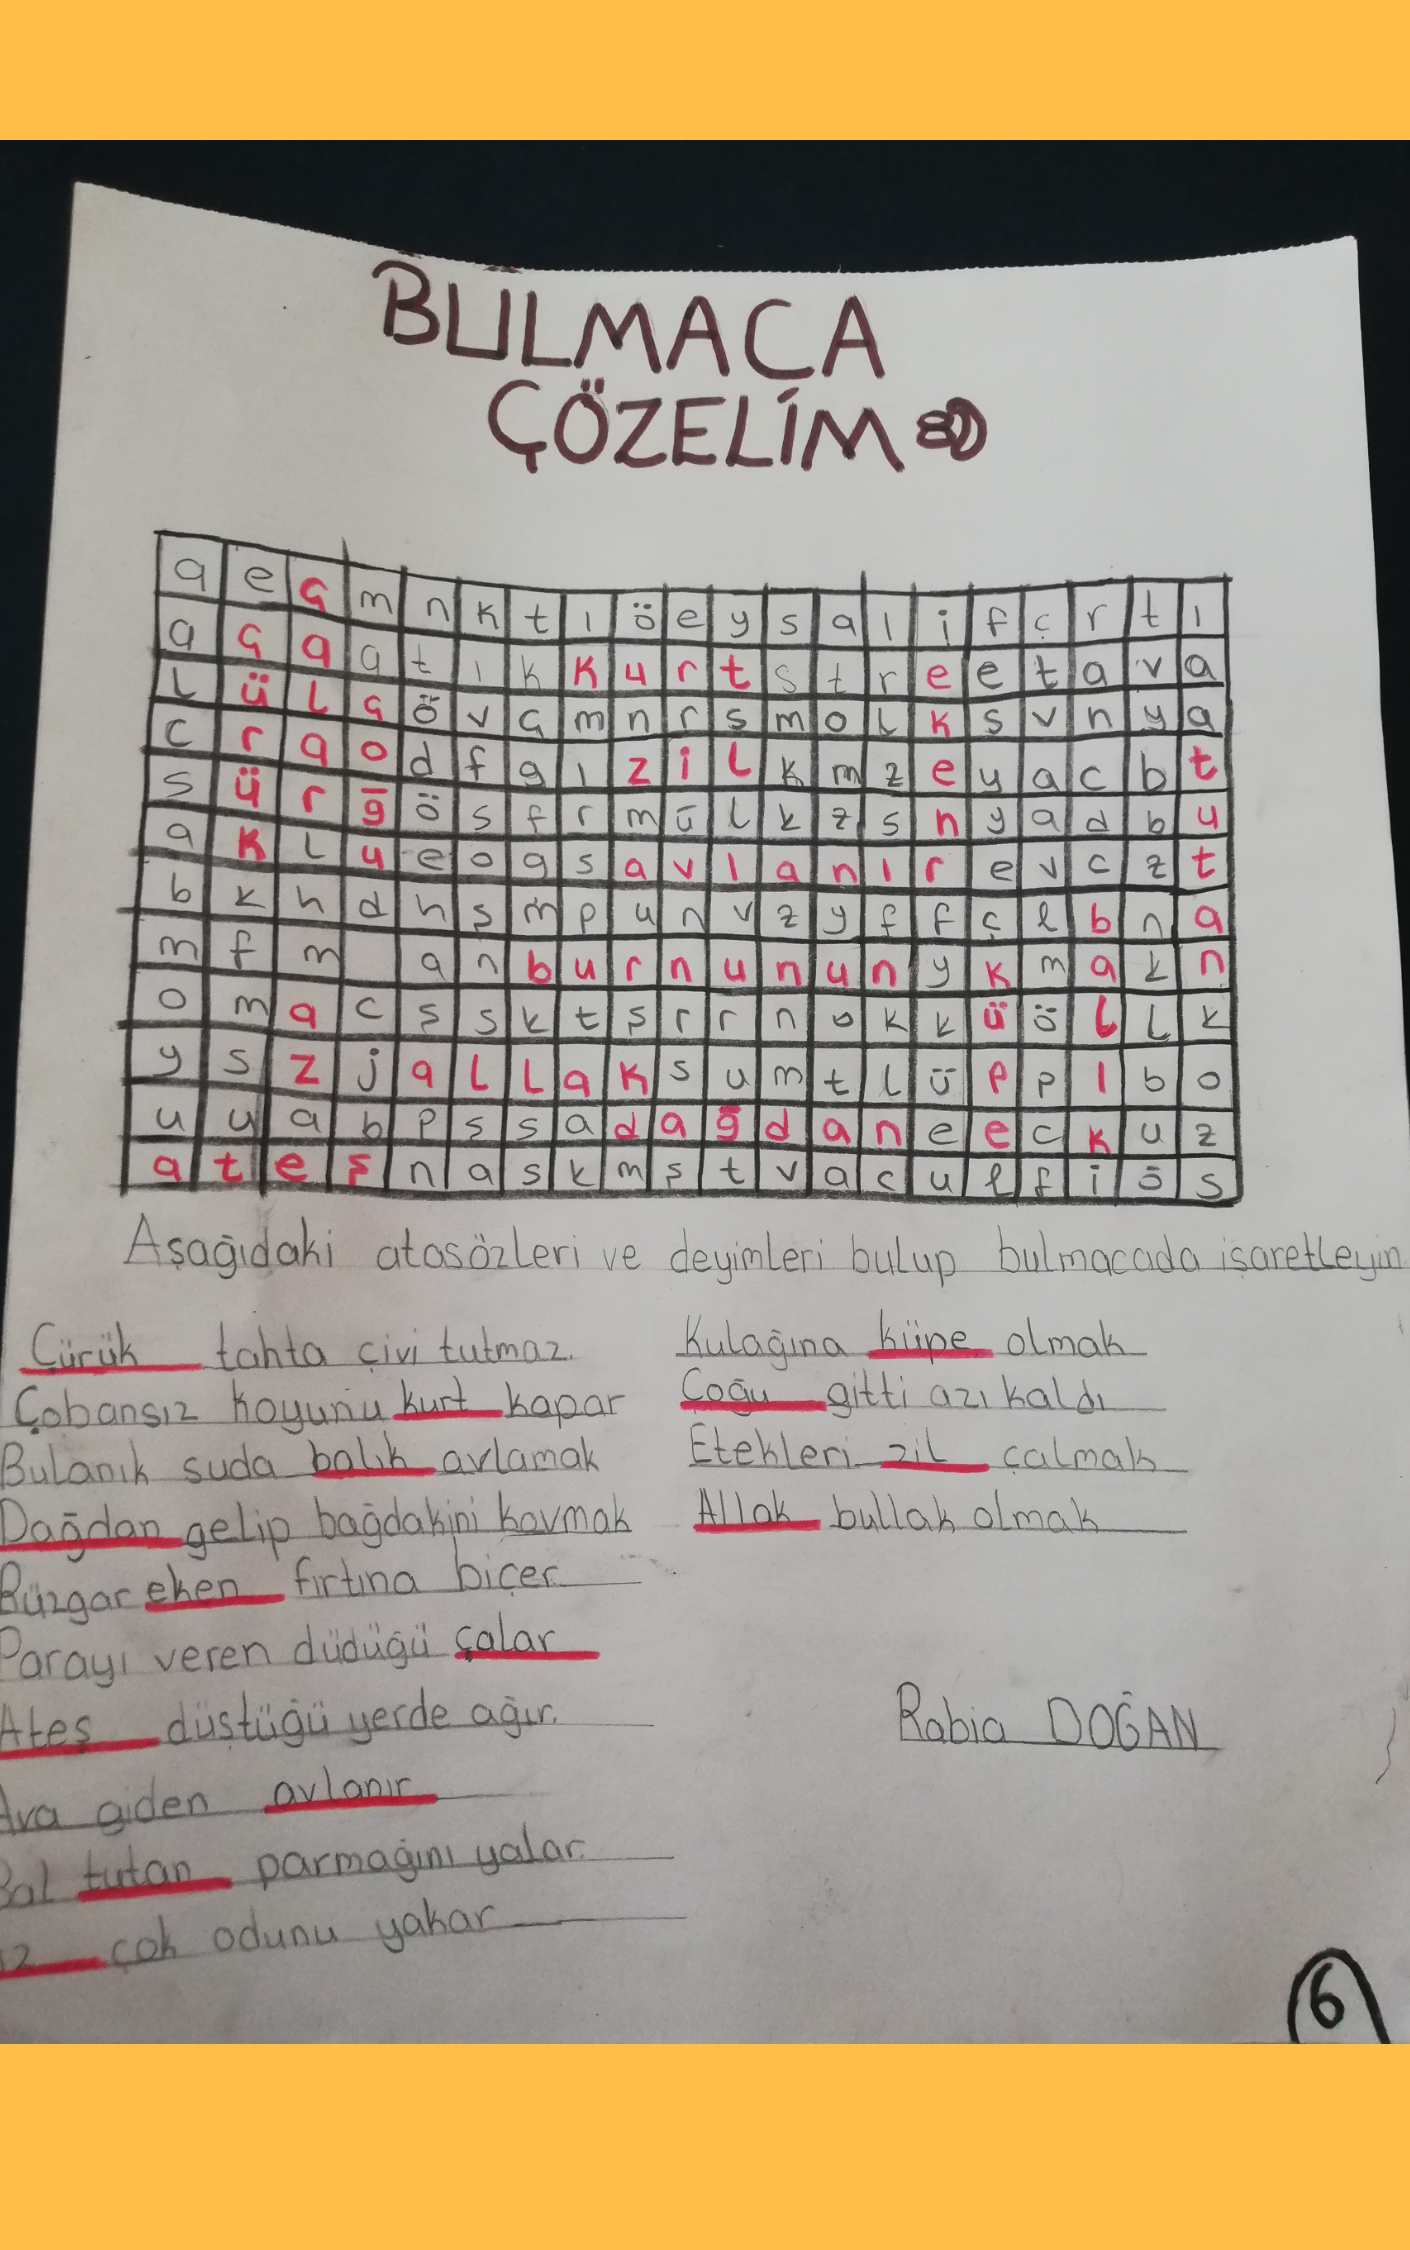 BULMACA
ÇÖZELİM
a e ç m n k t ı ö e y s a l i f ç r t ı
a ç a a t ı k k u r t s t r e e t a v a
l ü l ç ö v ç m n r s m o l k s v n y a
c r a o d f g ı z i l k m z e y a c b t
s ü r ğ ö s f r m ü l k z s n y a d b u
a k l u e o g s a v l a n ı r e v c z t
b k h d h s m p u n v z y f f ç l b n a
m f m a n b u r n u n u n y k m a k n
o m a c ş s k t ş r r n o k k ü ö l l k
y s z j a l l a k s u m t l ü p p ı b o
u u a b p s s a d a ğ d a n e e c k u z
a t e ş n a s k m ş t v a c u l f i ö s
Aşağıdaki atasözleri ve deyimleri bulup bulmacada işaretleyin
Çürük tahta çivi tutmaz. Kulağına küpe olmak
Çobansız koyunu kurt kapar Çoğu gitti azı kaldı
Bulanık suda balık avlamak Etekleri zil çalmak
Dağdan gelip bağdakini kovmak Allak bullak olmak
Rüzgar eken fırtına biçer.
Parayı veren düdüğü çalar
Ateş düştüğü yerde ağır.
Ava giden avlanır
Bal tutan parmağını yalar.
çok odunu yakar
Rabia DOĞAN
6